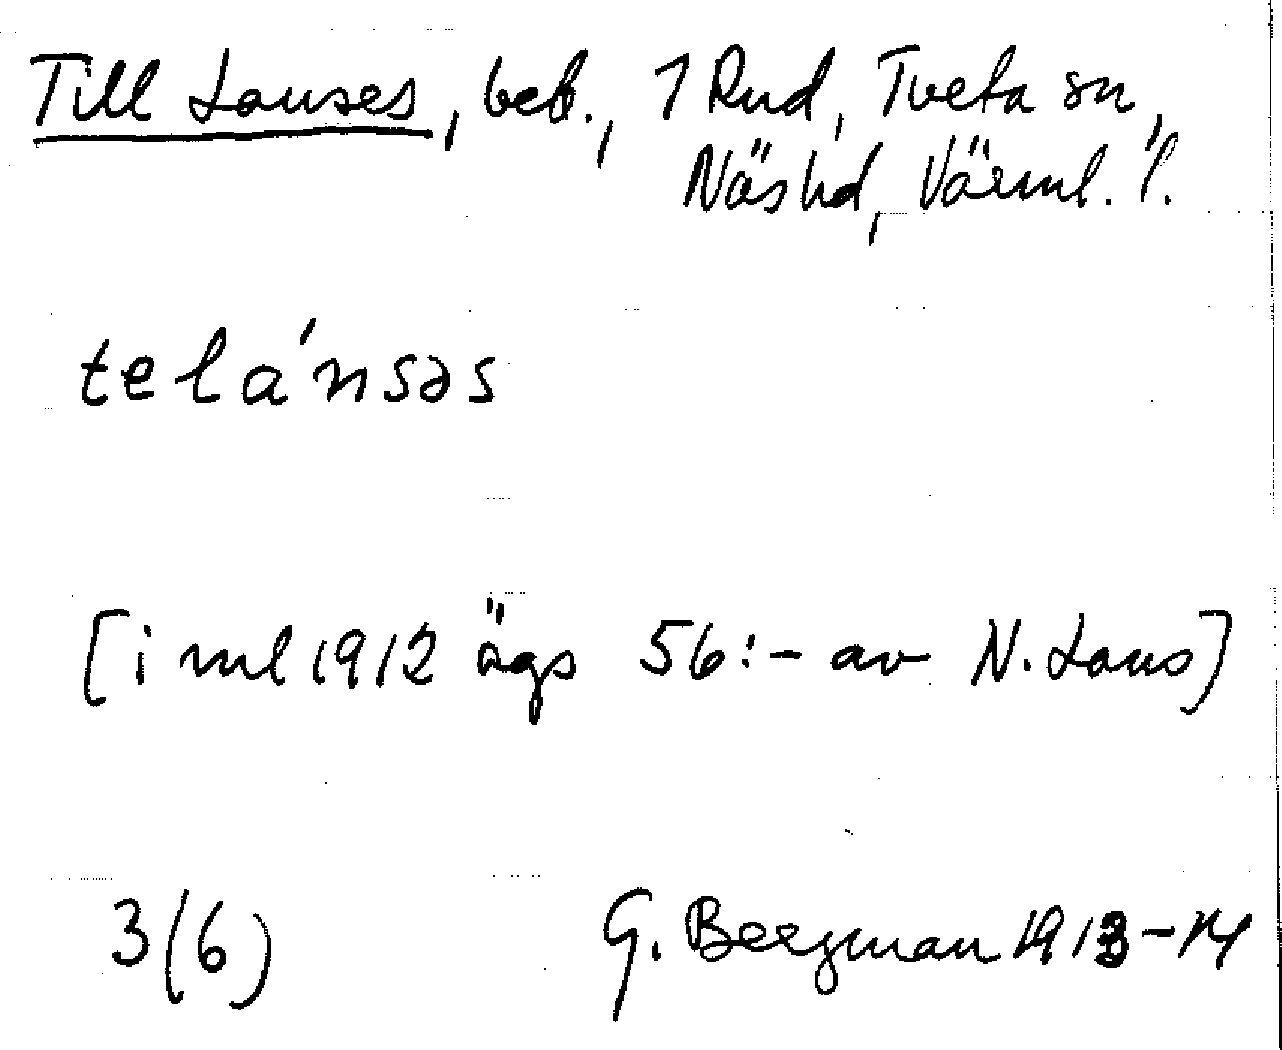 Till Lanses, beb., 1 Rud, Tveta sn,
Näs hd, Värml. l.
telánsəs
[i ml 1912 ägs 56:- av N. Lans]
3(6) G. Bergman 1913-14